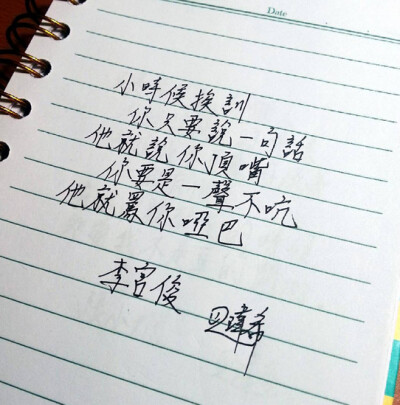 Date
小時候挨訓
你只要說一句話
他就說你頂嘴
你要是一聲不吭
他就罵你啞巴
李宮俊